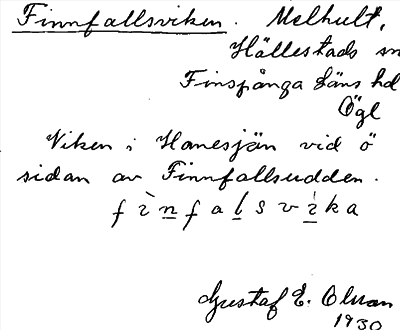 Finnfallsviken. Melhult,
Hällestads sn
Finspånga läns hd
Ögl
Viken i Hanesjän vid ö
sidan av Finnfallsudden.
f ì n f a l s v i k a
Gustaf E. Olsson
1930